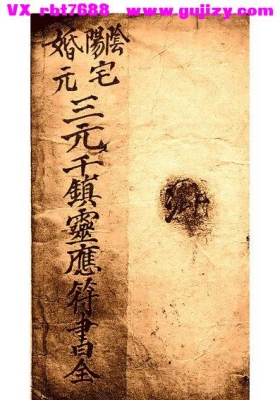 VX_rbt7688 www.gujizy.com
陰陽宅
婚元
三元千鎮靈應符書全